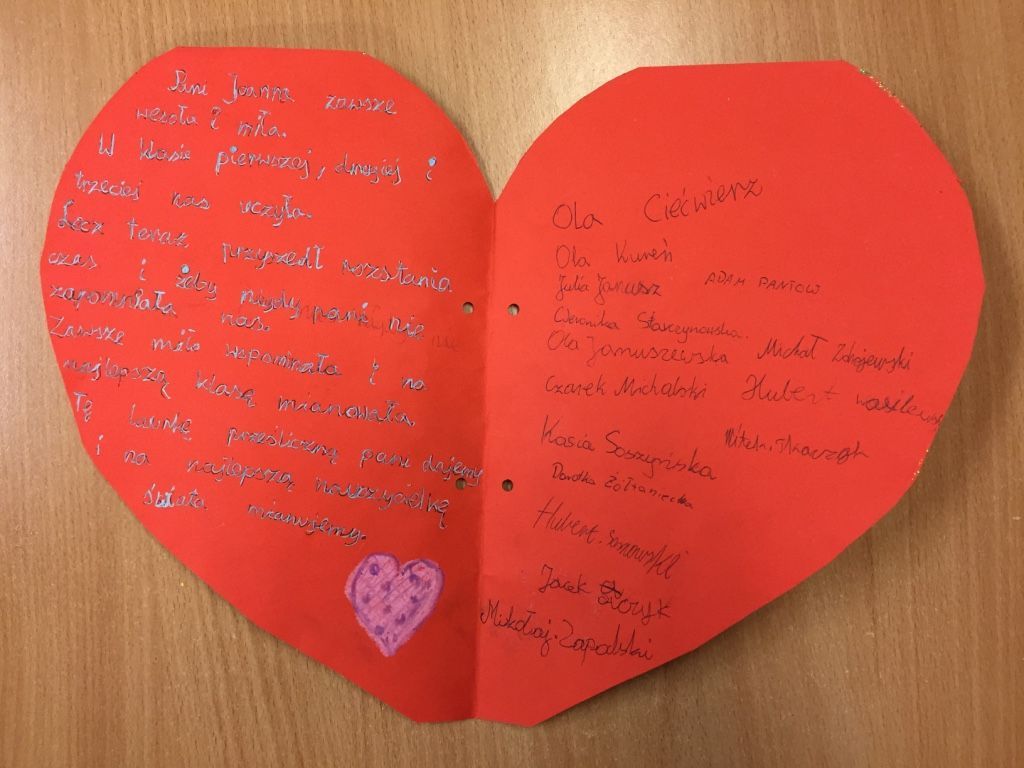 Pani Joanna zawsze
wesoła i miła.
W klasie pierwszej, drugiej i
trzeciej nas uczyła.
Lecz teraz przyszedł rozstania
czas i żeby nigdy pani nie
zapomniała nas.
Zawsze miło wspominała i na
najlepszą klasę mianowała.
Tę laurkę prześliczną pani dajemy
i na najlepszą nauczycielkę
świata mianujemy.
Ola Ciećwierz
Ola Kureń
Julia Janusz ADAM PANTOW
Weronika Starczynowska.
Ola Januszewska Michał Zdrojewski
Czarek Michalski Hubert
Witek. Tkaczyk
Kasia Soszyńska
Dorotka
Hubert. Sosnowski
Jacek
Mikołaj. Zapalski